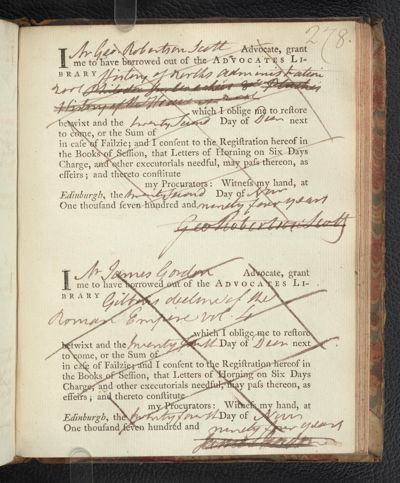 278.
I Mr Geo Robertson Scott Advocate, grant
me to have borrowed out of the ADVOCATES LI-
BRARY History of Norths administration
History of the
which I oblige me to restore
betwixt and the twenty second Day of Decr next
to come, or the Sum of
in case of Failzie; and I consent to the Registration hereof in
the Books of Session, that Letters of Horning on Six Days
Charge, and other executorials needful, may pass thereon, as
effeirs; and thereto constitute
my Procurators: Witness my hand, at
Edinburgh, the twenty second Day of Novr
One thousand seven hundred and ninety four years
Geo Robertson Scott
I Mr James Gordon Advocate, grant
me to have borrowed out of the ADVOCATES LI-
BRARY Gibbons decline of the
Roman Empire vol. 4
which I oblige me to restore
betwixt and the twenty fourth Day of Decr next
to come, or the Sum of
in case of Failzie; and I consent to the Registration hereof in
the Books of Session, that Letters of Horning on Six Days
Charge, and other executorials needful, may pass thereon, as
effeirs; and thereto constitute
my Procurators: Witness my hand, at
Edinburgh, the twenty fourth Day of Novr
One thousand seven hundred and ninety four years
James Gordon